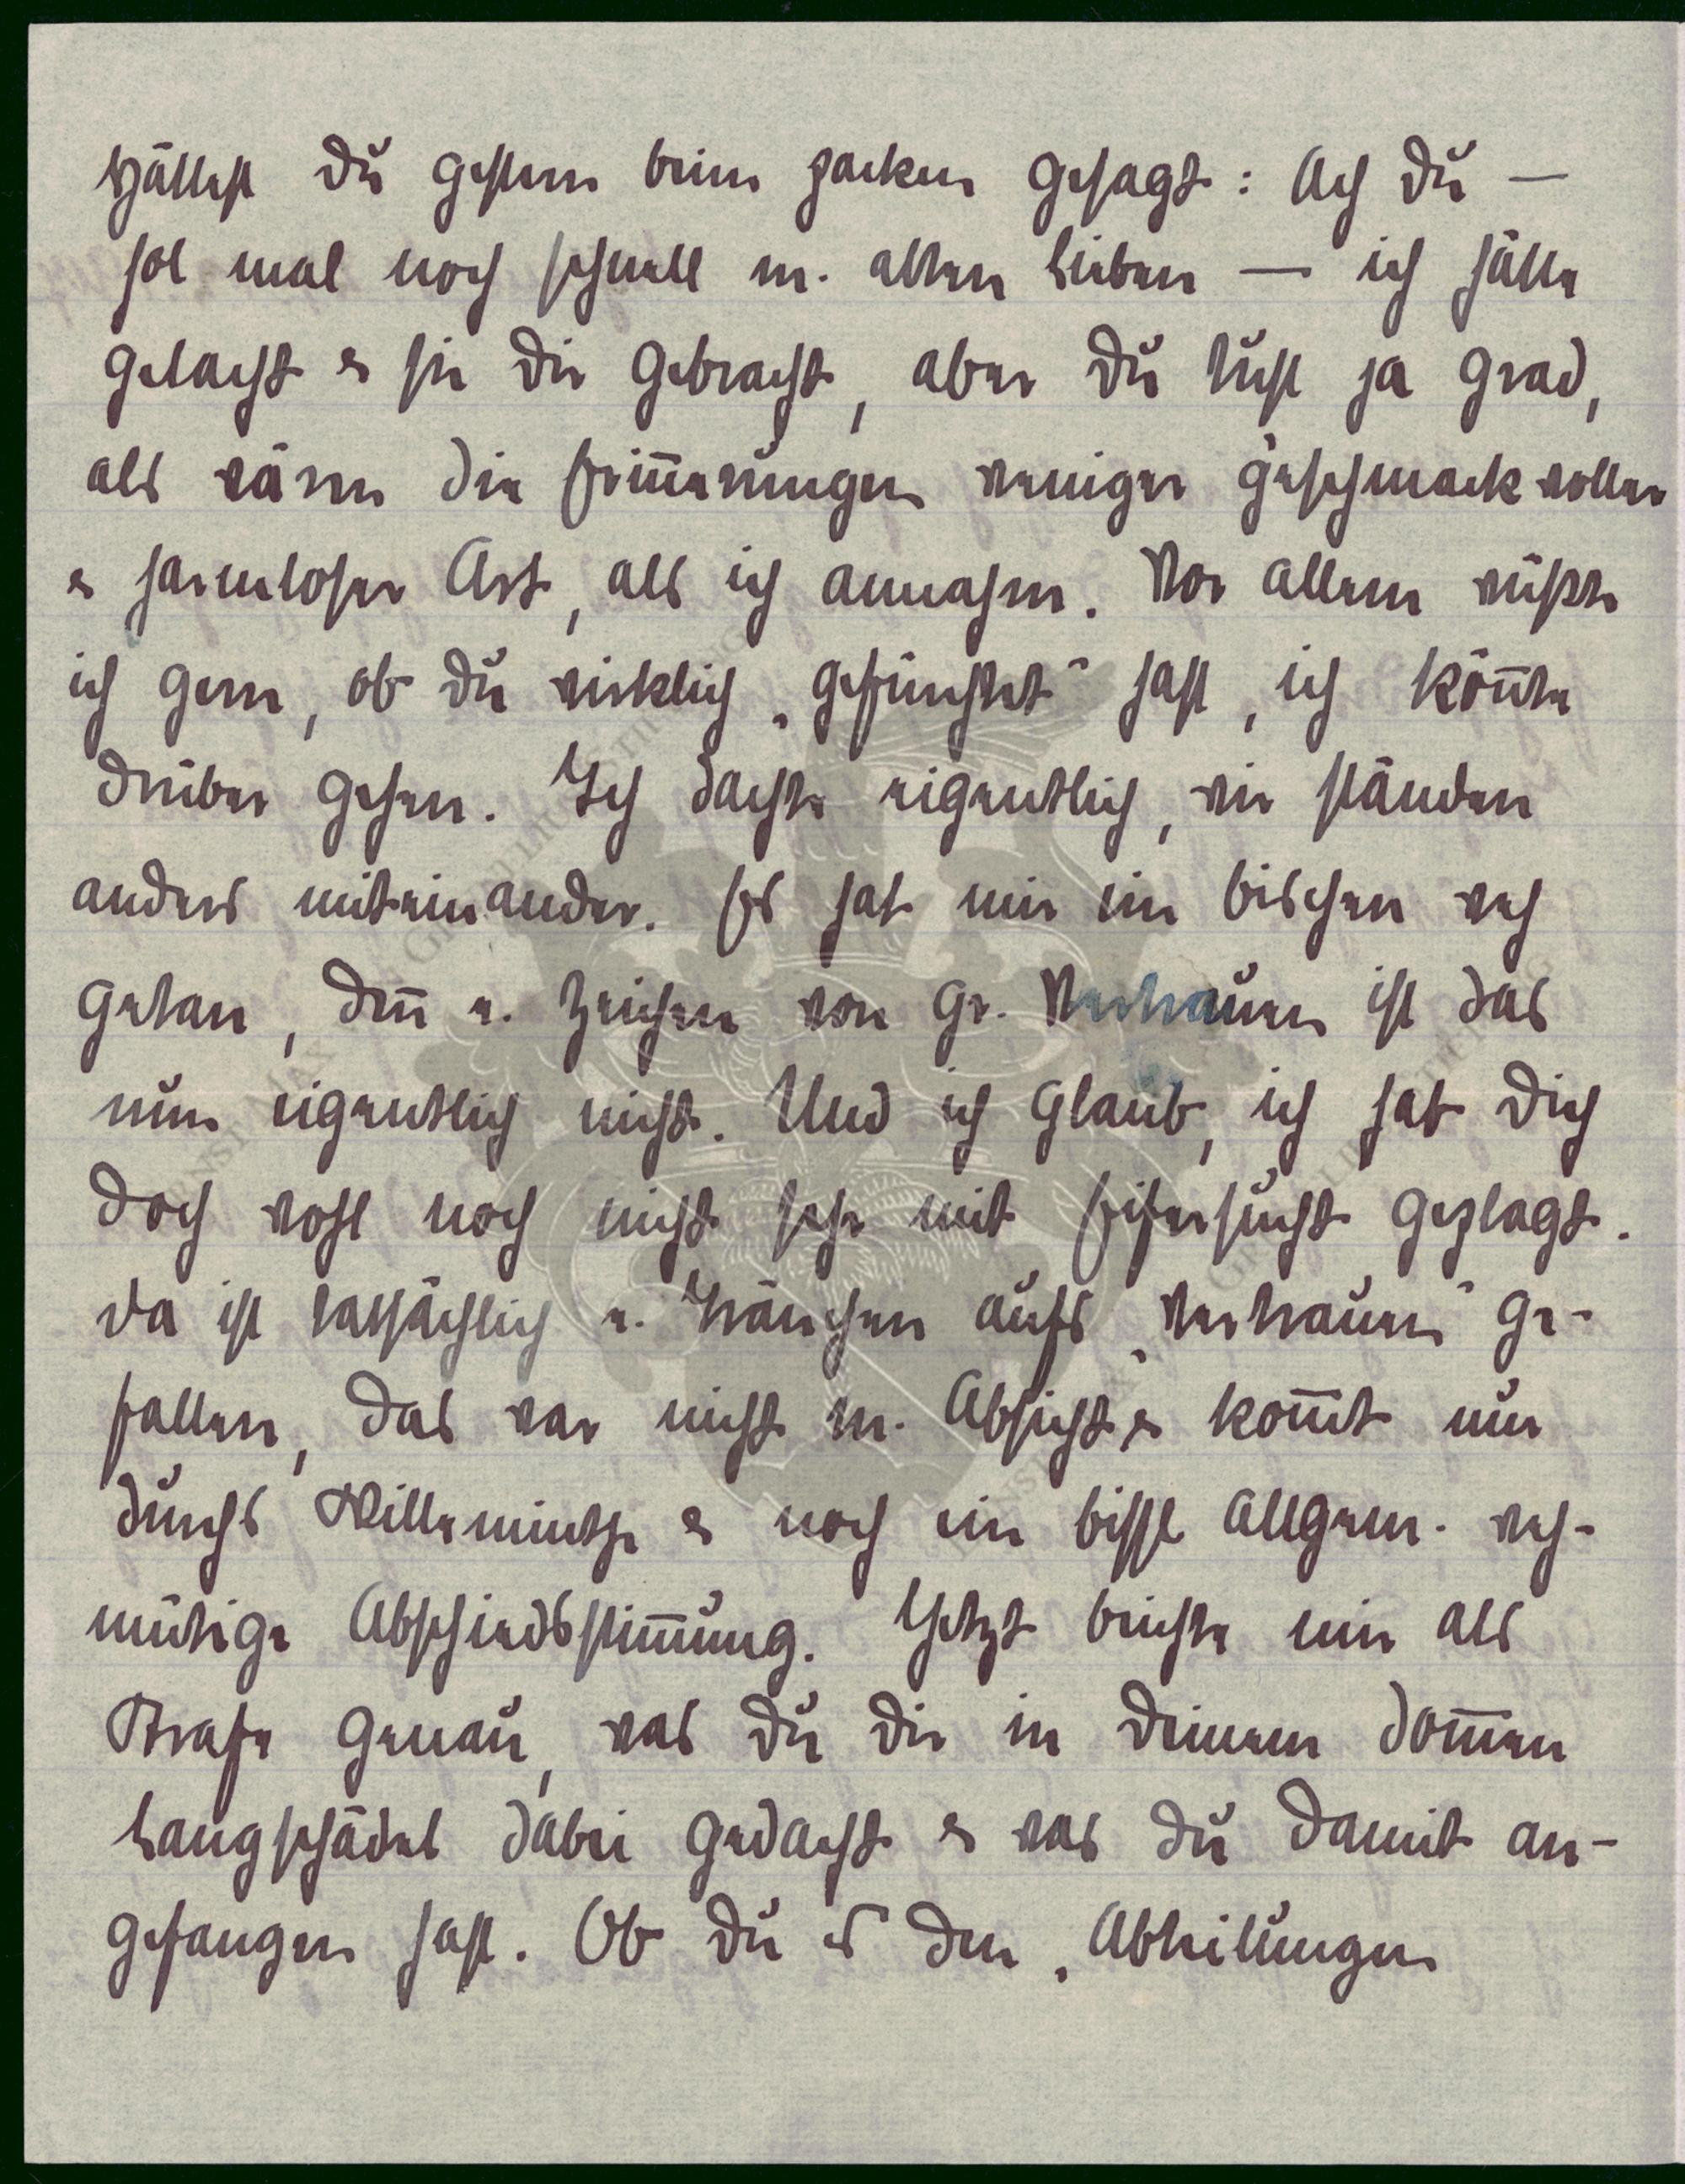 Hättest Du gestern beim packen gesagt: Ach Du —
hol mal noch schnell m. alten Lieben — ich hätte
gelacht & sie Dir gebracht, aber Du tust ja grad,
als wären die Erinnerungen weniger geschmackvoller
& harmloser Art, als ich annahm. Vor allem wüßte
ich gern, ob Du wirklich „gefürchtet" hast, ich könnte
drüber gehen. Ich dachte eigentlich, wir ständen
anders miteinander. Es hat mir ein bischen weh
getan, denn e. Zeichen von gr. Vertrauen ist das
nun eigentlich nicht. Und ich glaub, ich hab Dich
doch wohl noch nicht sehr mit Eifersucht geplagt.
Da ist tatsächlich e. Tränchen aufs „Vertrauen" ge-
fallen, das war nicht m. Absicht & kommt nur
durchs & noch ein bissl allgem. weh-
mütige Abschiedsstimmung. Jetzt beichte mir als
Strafe genau, was Du Dir in Deinem dommen
Langschädel dabei gedacht & was Du damit an-
gefangen hast. Ob Du es den „Abteilungen